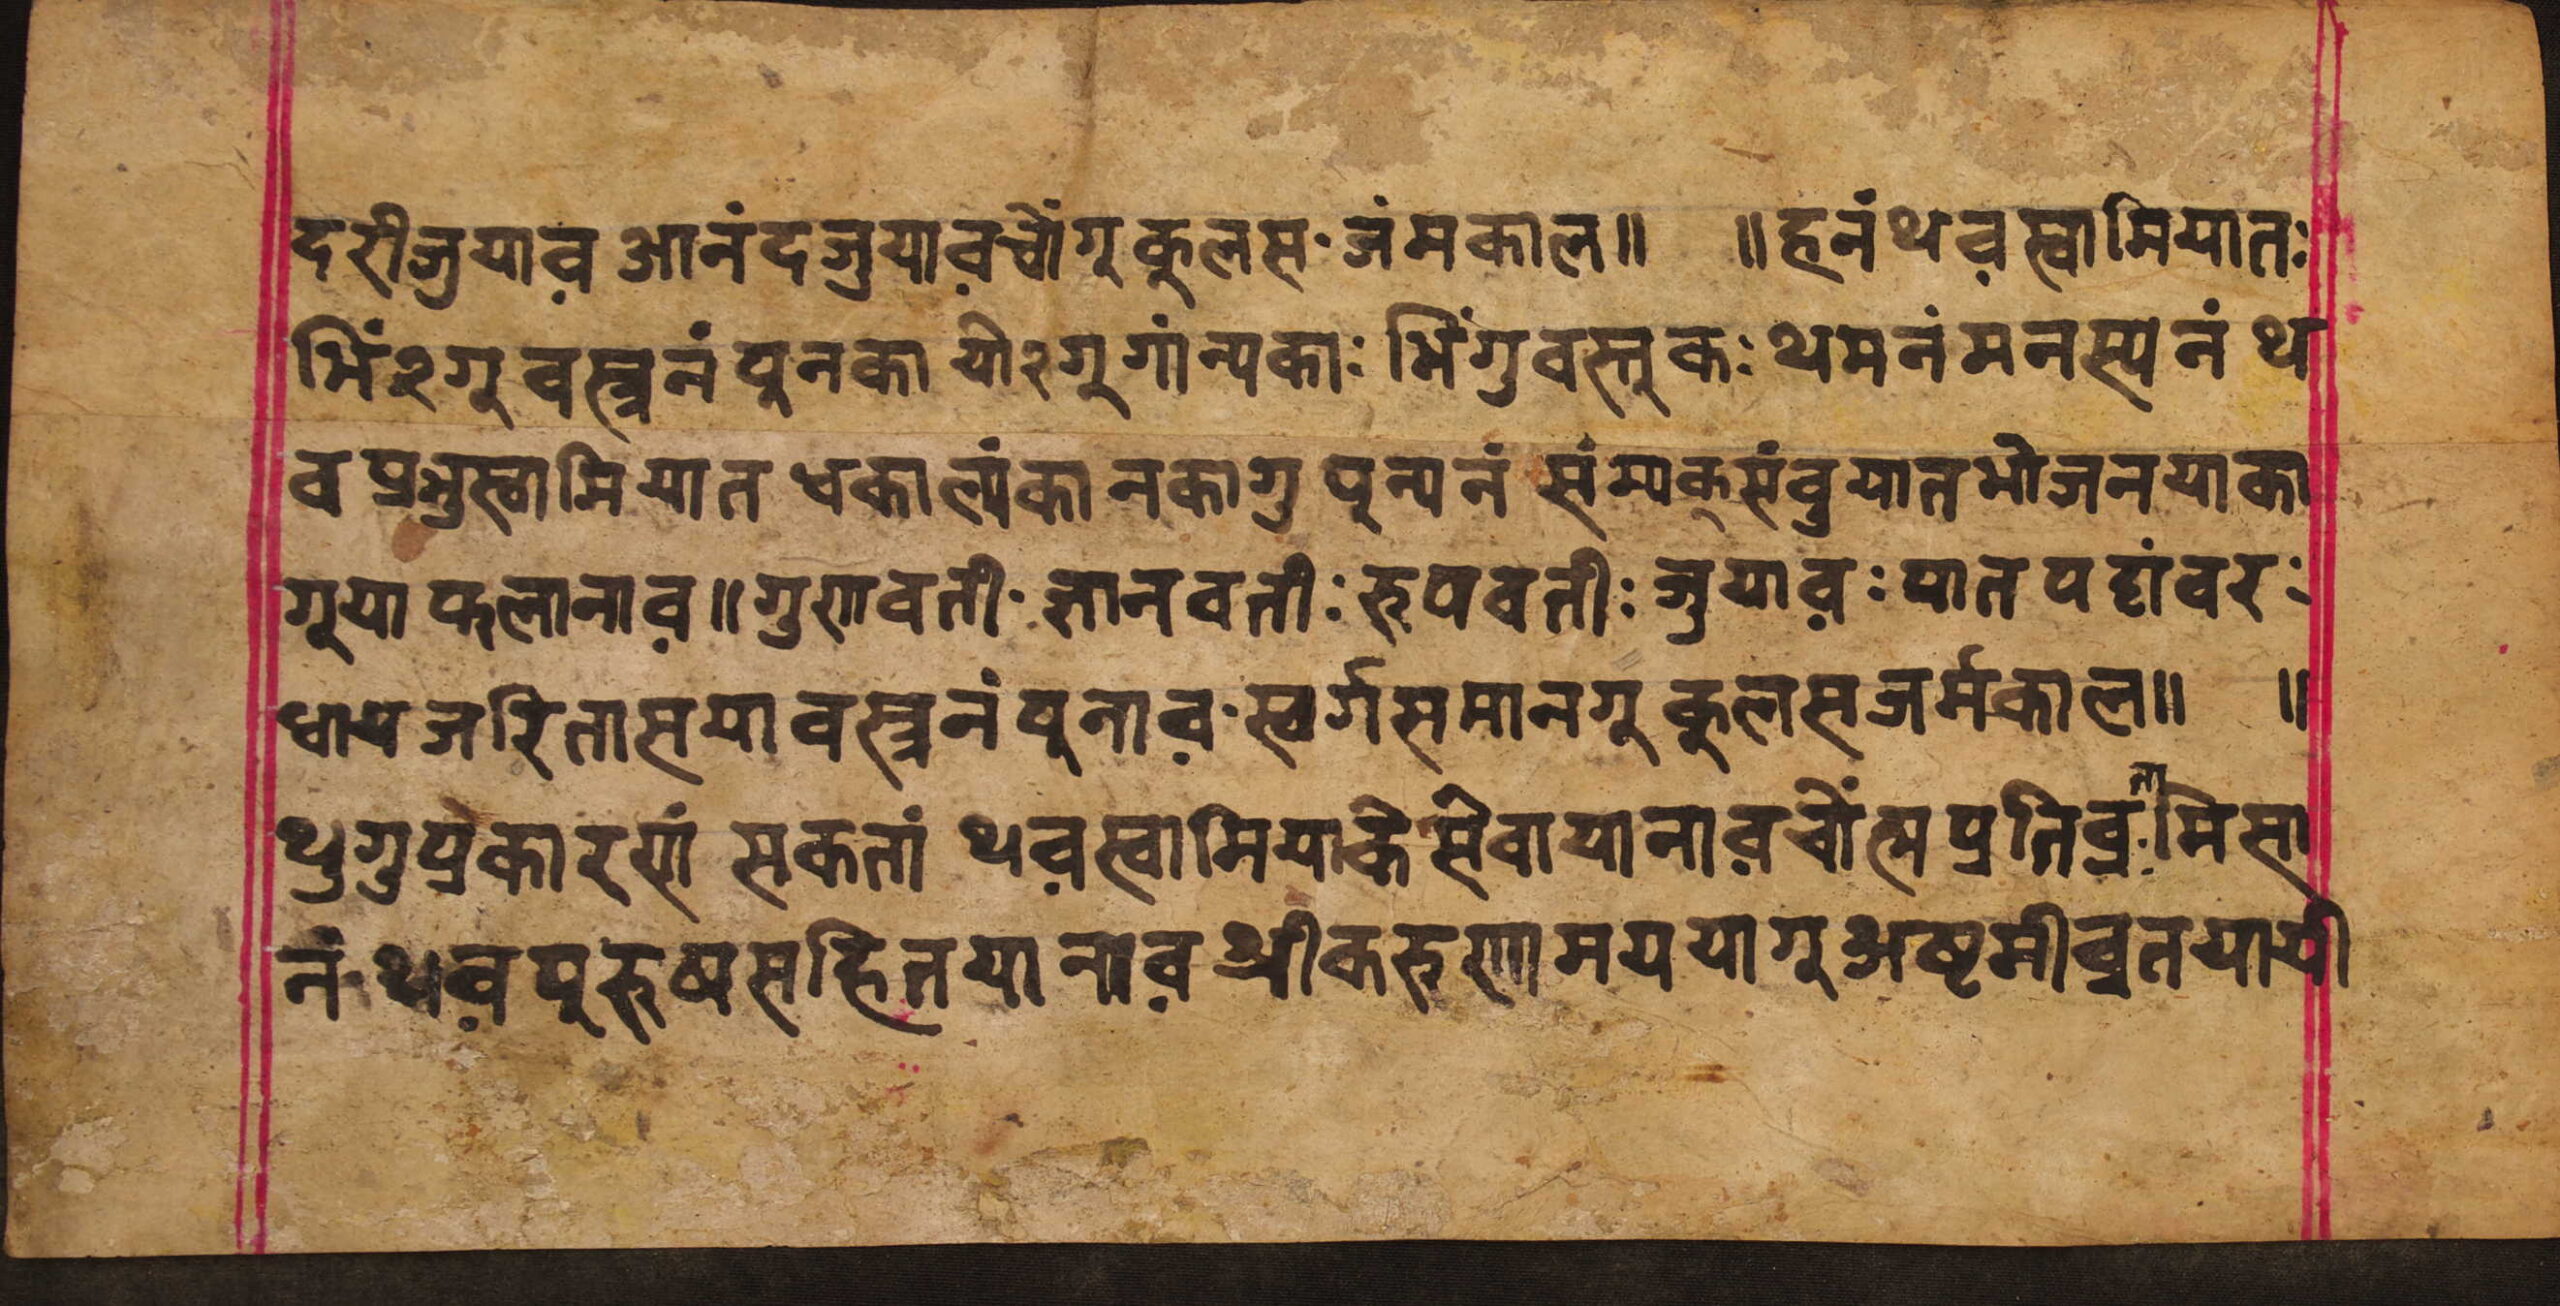 दरीजुयाव़ आनंदजुयाव़चोंगू कुलस॰ जंमकाल॥ ॥हनं थव़स्वामियातः
भिं२गू वस्त्रनं पुनका यो२गू गांन्यकाः भिंगुवस्तुकः थमनंमनस्य नं थ
व प्रभुस्वामियात धकाल्यंका नकागु पून्यनं संम्यक्संवुयातभोजनयाका
गूया फलानाव़॥गुणवती॰ज्ञानवतीः रुपवतीः जुयाव़ः पातपट्टांवरः
धाय जरितासया वस्त्रनं पुनाव़॰स्वर्गसमानगू कुलसजर्मकाल॥ ॥
थुगुप्रकारणं सकतां थव़स्वामियाके सेवायानाव़चोंह्म प्रतिव्रता मिसा
नं॰थव़पुरुषसहितयानाव़ श्रीकरुणामययागू अष्टमीव्रतयायी